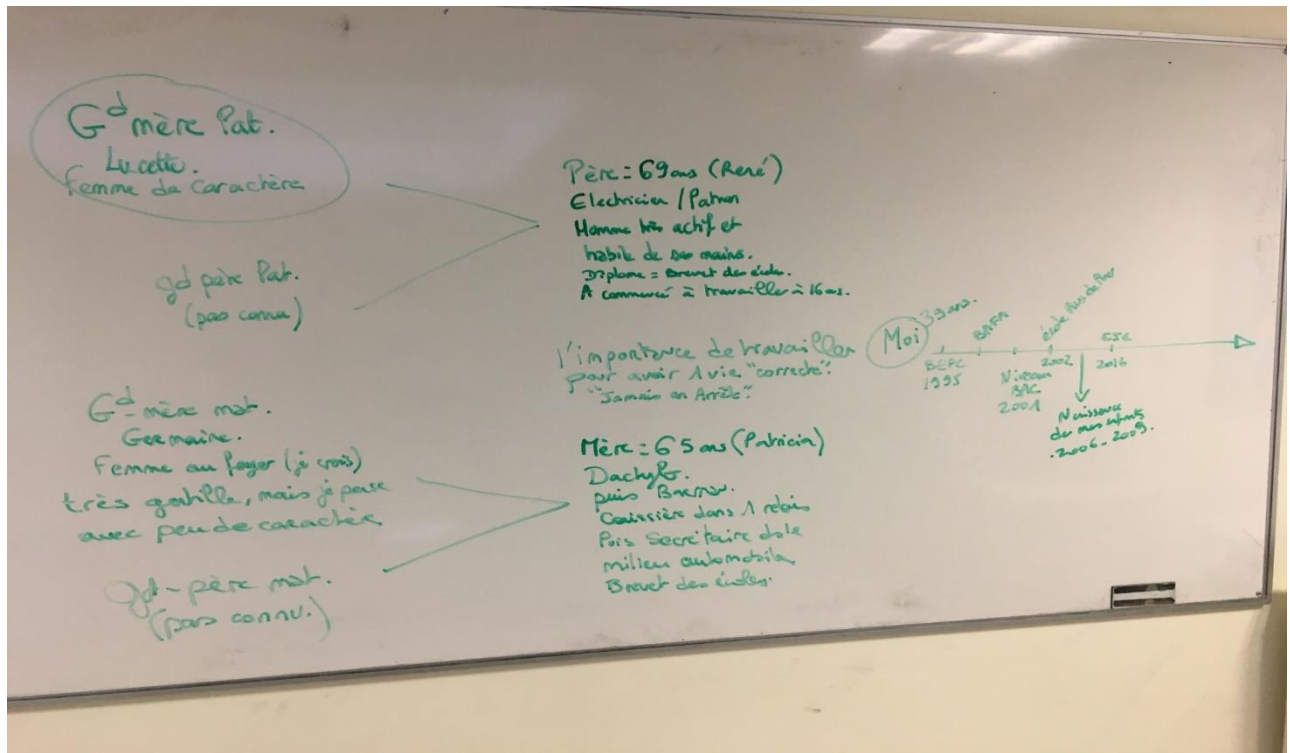 Gd mère Pat.
Lucette.
Femme de Caractère
gd père Pat.
(pas connu)
Gd-mère mat.
Germaine.
Femme au foyer (je crois)
très gentille, mais je pense
avec peu de caractère
gd-père mat.
(pas connu.)
Père = 69 ans (René)
Electricien / Patron
Homme très actif et
habile de ses mains.
Diplome = Brevet des écoles.
A commencé à travailler à 16 ans.
l'importance de travailler
pour avoir 1 vie "correcte".
"Jamais on Arrête".
Mère = 65 ans (Patricia)
Dactylo.
puis
Caissière dans 1 relais
Puis Secrétaire ds le
milieu automobile
Brevet des écoles.
Moi 39 ans.
BEPC
1995
BAFA
Niveau
BAC
2001
école
2002
2016
Naissance
de mes enfants
2006-2009.